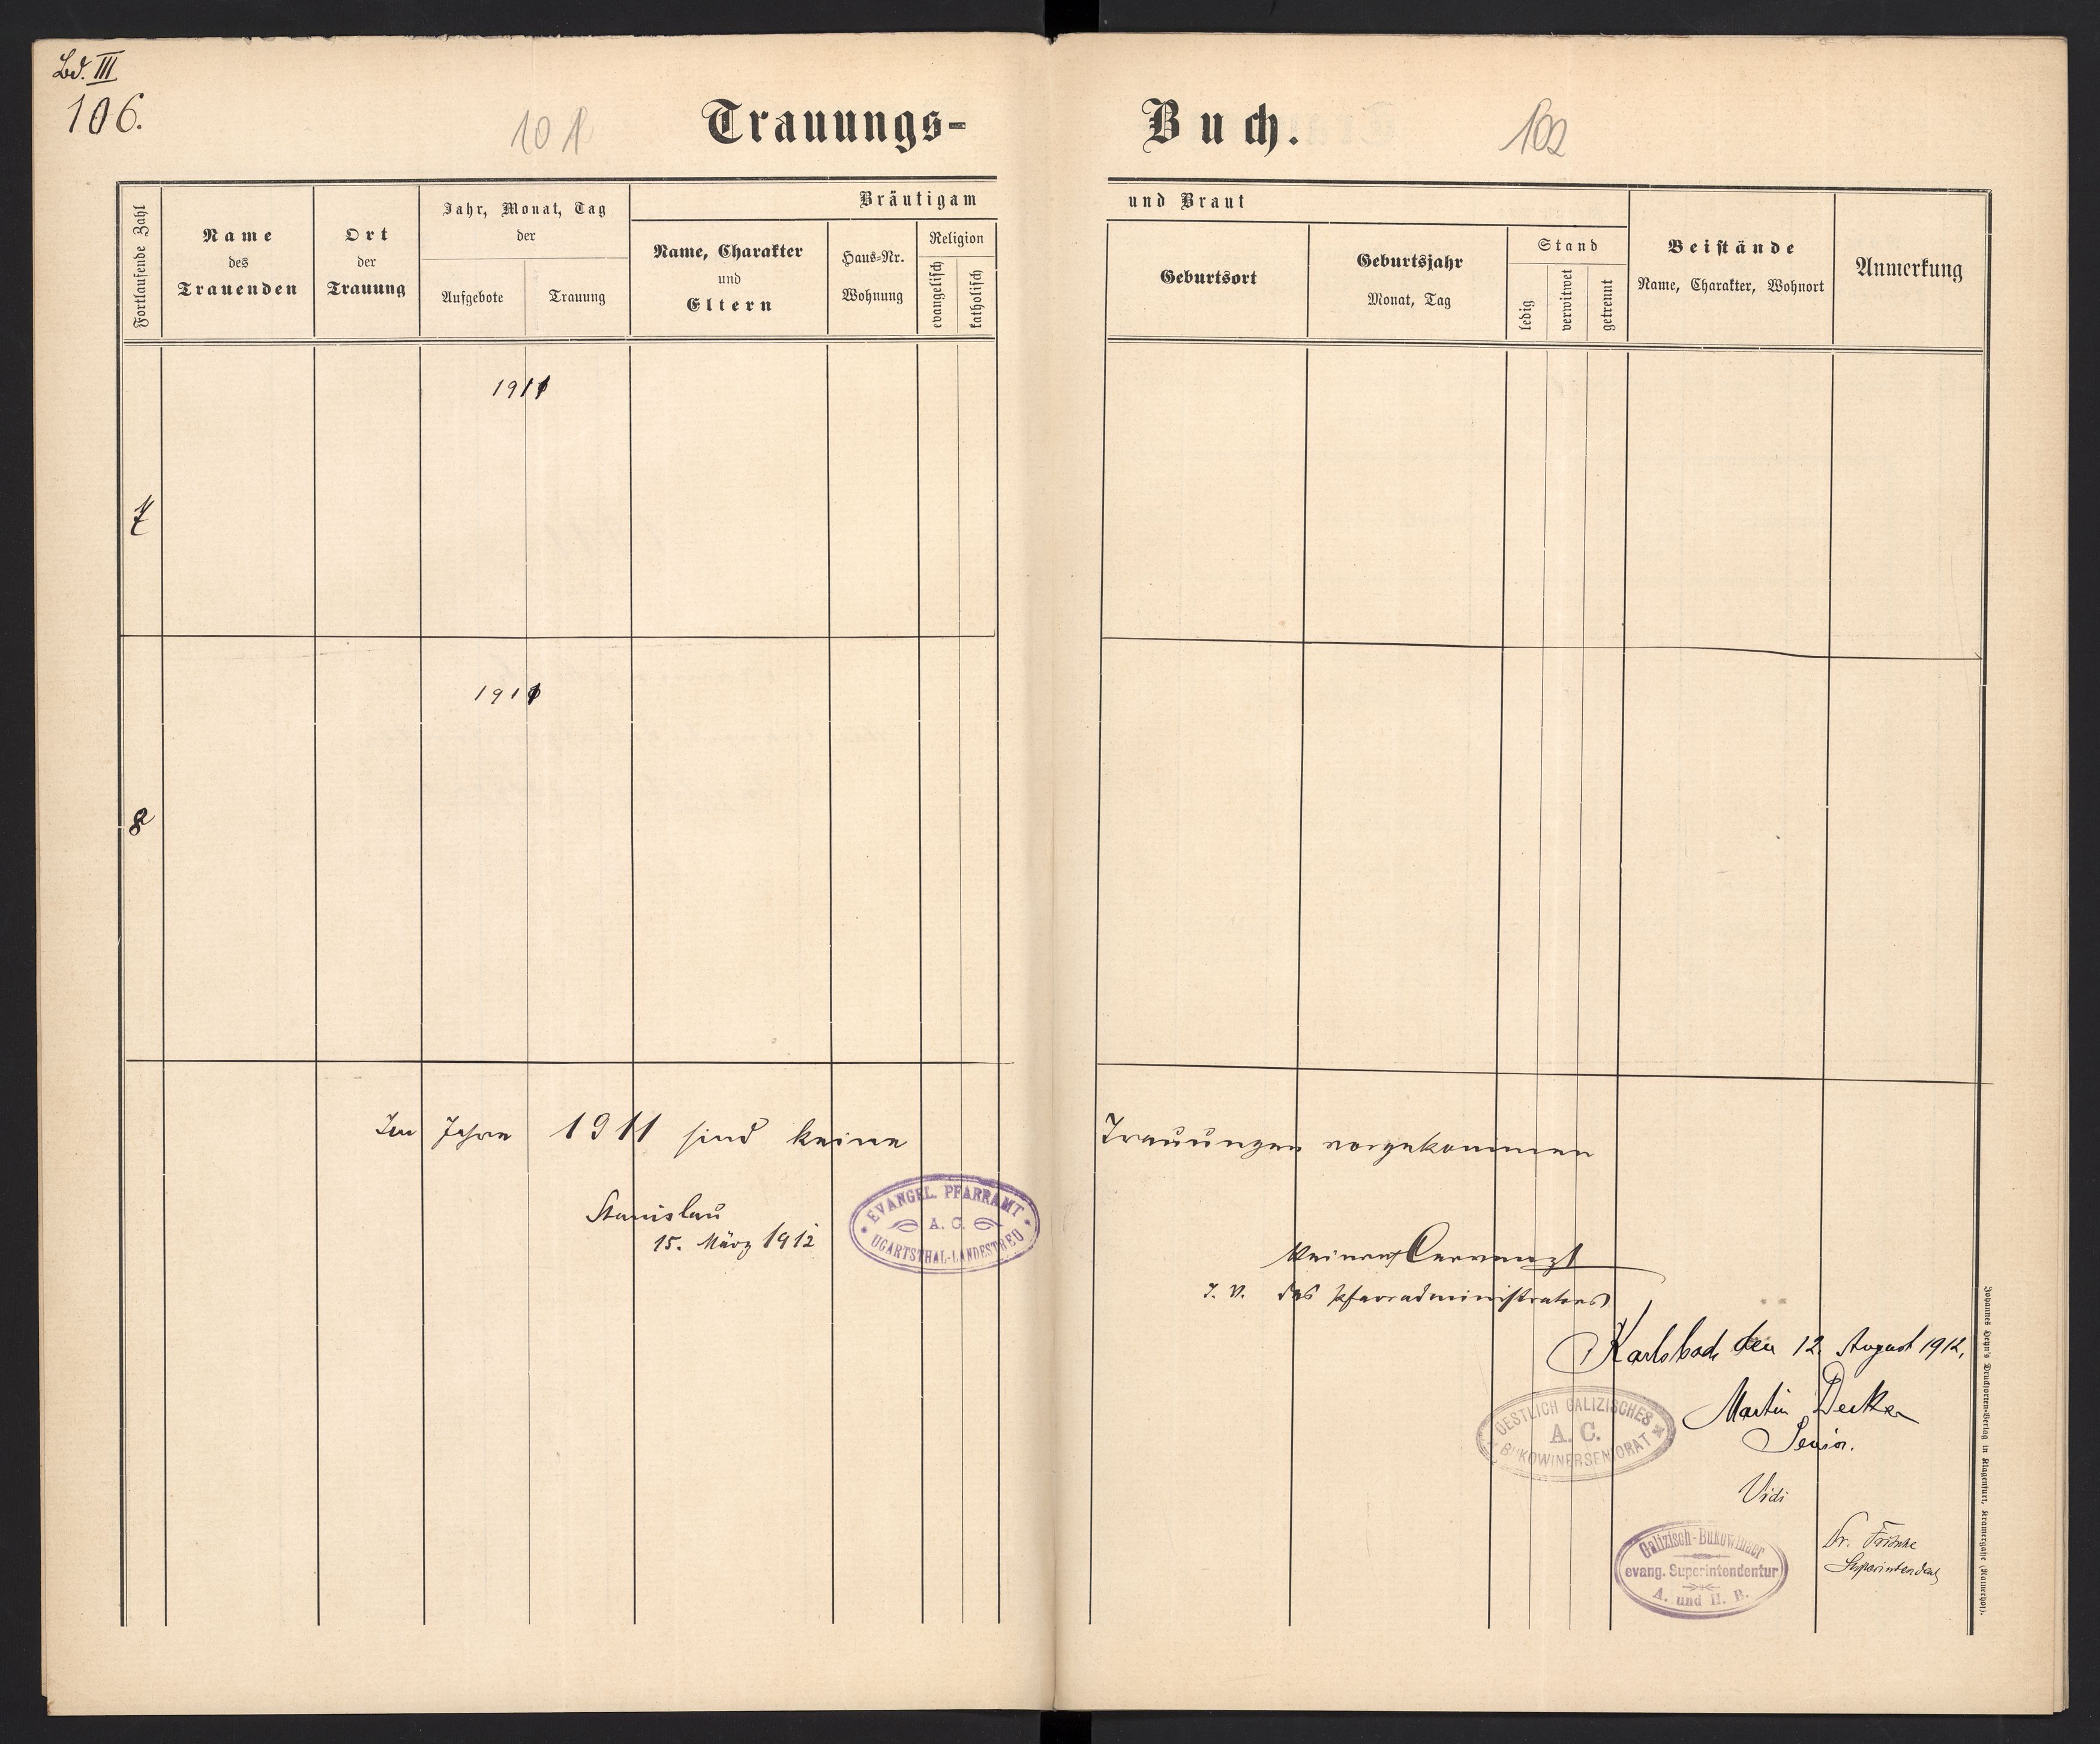 Bd. III
106.
101
Trauungs-
Fortlaufende Zahl
Name
des
Trauenden
Ort
der
Trauung
Jahr, Monat, Tag
der
Aufgebote
Trauung
Bräutigam
Name, Charakter
und
Eltern
Haus-Nr.
Wohnung
Religion
evangelisch
katholisch
1911
7
1911
8
Im Jahre 1911 sind keine
Stanislau
15. März 1912
EVANGEL. PFARRAMT
A. C.
UGARTSTHAL-LANDESTREU
Buch.
102
und Braut
Geburtsort
Geburtsjahr
Monat, Tag
Stand
ledig
verwitwet
getrennt
Beistände
Name, Charakter, Wohnort
Anmerkung
Trauungen vorgekommen
I. V. des Pfarradministrators
Karlsbad, den 12. August 1912,
OESTLICH GALIZISCHES
A. C.
BUKOWINERSENIORAT
Martin Decker
Senior.
Vidi
Galizisch-Bukowinaer
evang. Superintendentur
A. und H. B.
Dr. Fritsche
Superintendent
Johannes Heyn's Drucksorten-Verlag in Klagenfurt, Kramergasse